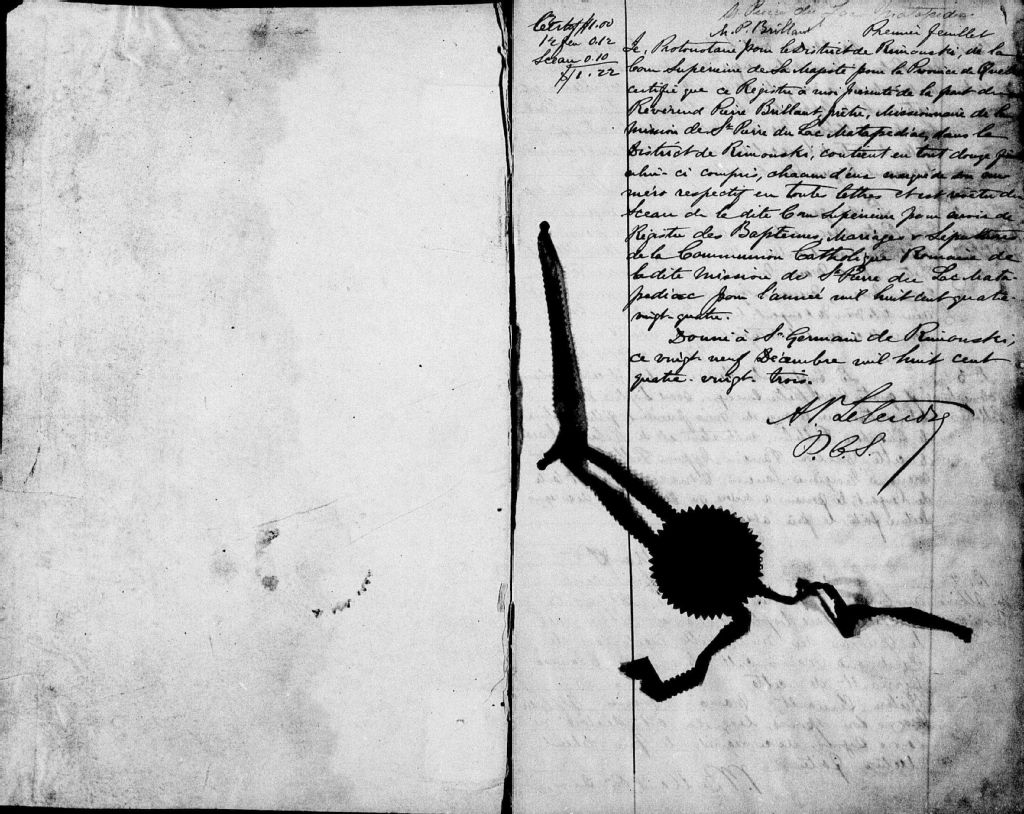 Certif $1.00
12 feu 0.12
Sceau 0.10
$1.22
St Pierre du Lac Matapedia
M. P. Brillant Premier feuillet
Je, Protonotaire pour le District de Rimouski, de la
Cour Superieure de Sa Majesté pour la Province de Québec
certifie que ce Registre à moi présenté de la part du
Révérend Pierre Brillant, prêtre, Missionnaire de la
mission de St Pierre du Lac Matapediac, dans le
District de Rimouski, contient en tout douze
celui-ci compris, chacun d'eux marqué de son nu
méro respectif en toute lettres et est revêtu du
Sceau de la dite Cour Superieure pour servir de
Régistre des Baptemes, Mariages & Sepultures
de la Communion Catholique Romaine de
la dite mission de St Pierre du Lac Mata
pediac pour l'année mil huit cent quatre-
vingt-quatre.
Donné à St Germain de Rimouski,
ce vingt neuf Décembre mil huit cent
quatre-vingt-trois.
A. P. Letendre
P. C. S.